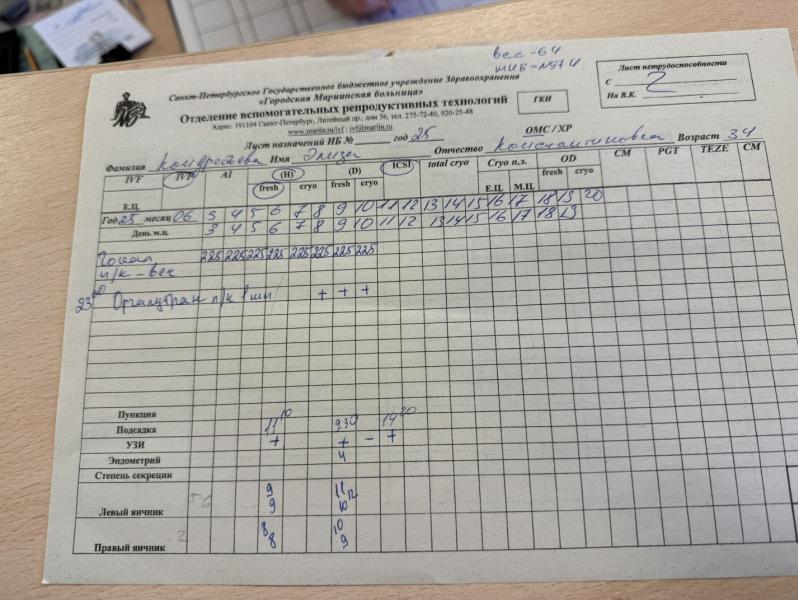 вес - 64
Санкт-Петербургское Государственное бюджетное учреждение Здравоохранения
«Городская Мариинская больница»
Отделение вспомогательных репродуктивных технологий
Адрес: 191104 Санкт-Петербург, Литейный пр., дом 56, тел. 275-72-40, 920-25-48
www.mariin.ru/ivf ; ivf@mariin.ru
ГКИ
Лист нетрудоспособности
С 2
На В.К.
Лист назначений ИБ № год 25
ОМС / ХР
Фамилия Имя Элиза Отчество Константиновна Возраст 34
IVF IVM AI (H) (D) ICSI total cryo Cryo п.э. OD CM PGT TEZE CM
fresh cryo fresh cryo Е.Ц. М.Ц. fresh cryo
Е.Ц.
Год 25 месяц 06 3 4 5 6 7 8 9 10 11 12 13 14 15 16 17 18 19 20
День м.ц. 3 4 5 6 7 8 9 10 11 12 13 14 15 16 17 18 19
225 225 225 225 225 225 225 225
п/к - веч
23 00 Оргалутран п/к 1 шп + + +
Пункция
Подсадка 11 10 9 30 14 20
УЗИ + + - +
Эндометрий 4
Степень секреции
Левый яичник 5-6 9 9 11 12 10
Правый яичник 2 8 8 10 9